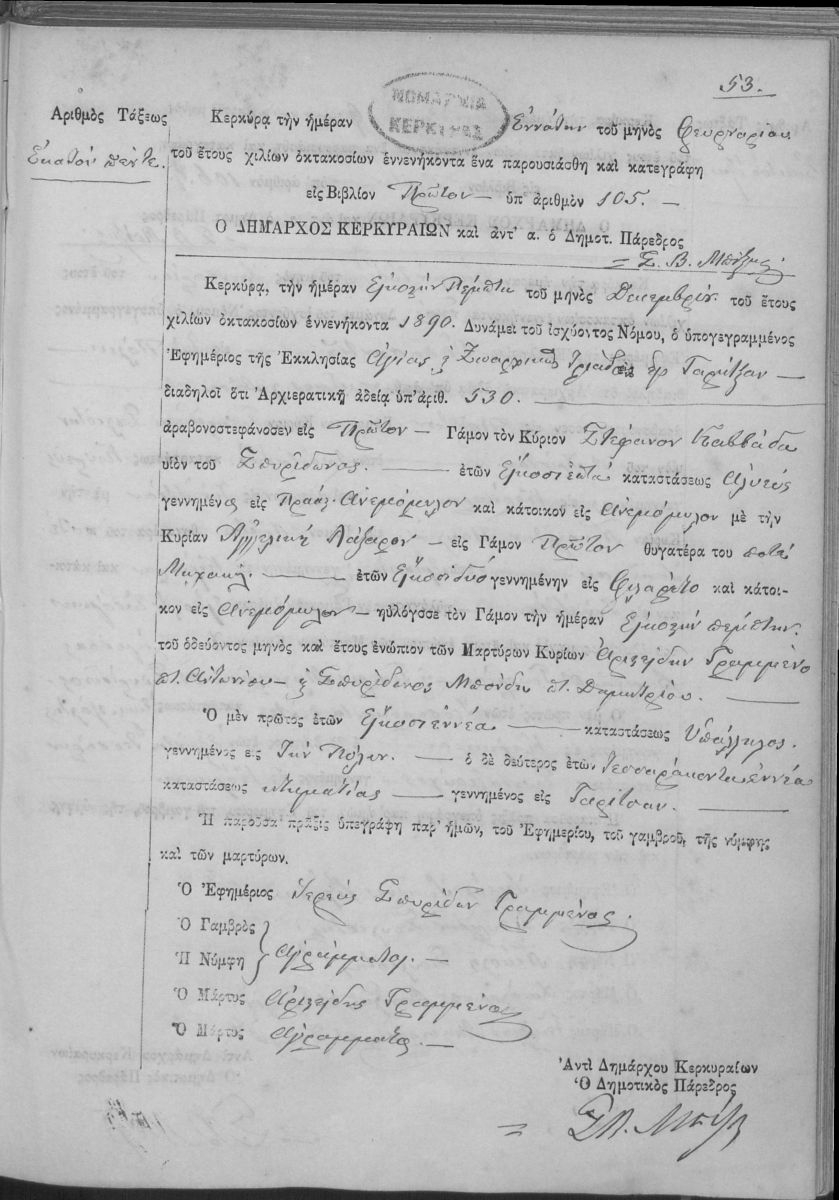 53.
ΝΟΜΑΡΧΙΑ
ΚΕΡΚΥΡΑΣ
Ἀριθμὸς Τάξεως
Ἑκατὸν πέντε.
Κερκύρᾳ τὴν ἡμέραν Ἐννάτην τοῦ μηνὸς Φευρουαρίου
τοῦ ἔτους χιλίων ὀκτακοσίων ἐννενήκοντα ἕνα παρουσιάσθη καὶ κατεγράφη
εἰς Βιβλίον Πρῶτον — ὑπ' ἀριθμὸν 105. —
Ὁ ΔΗΜΑΡΧΟΣ ΚΕΡΚΥΡΑΙΩΝ καὶ ἀντ' α. ὁ Δημοτ. Πάρεδρος
Σ. Β.
Κερκύρᾳ, τὴν ἡμέραν Εἰκοστὴν Πέμπτη τοῦ μηνὸς Δεκεμβρίου τοῦ ἔτους
χιλίων ὀκτακοσίων ἐννενήκοντα 1890. Δυνάμει τοῦ ἰσχύοντος Νόμου, ὁ ὑπογεγραμμένος
Ἐφημέριος τῆς Ἐκκλησίας Ἁγίας Τριάδος Γαρίτζαν —
διαδηλοῖ ὅτι Ἀρχιερατικῇ ἀδείᾳ ὑπ' ἀριθ. 530.
ἀραβονοστεφάνοσεν εἰς Πρῶτον — Γάμον τὸν Κύριον Στέφανον Καββάδα
υἱὸν του Σπυρίδωνος. — ἐτῶν Εἰκοσιεπτὰ καταστάσεως Ἁλιεὺς
γεννημένος εἰς Ἀνεμόμυλον καὶ κάτοικον εἰς Ἀνεμόμυλον μὲ τὴν
Κυρίαν Ἀγγελικὴ Λάζαρου — εἰς Γάμον Πρῶτον θυγατέρα του ποτὲ
Μιχαήλ. — ἐτῶν Εἰκοσιδύο γεννημένην εἰς καὶ κάτοι-
κον εἰς Ἀνεμόμυλον — ηὐλόγσσε τὸν Γάμον τὴν ἡμέραν Εἰκοστὴν πέμπτην.
τοῦ ὁδεύοντος μηνὸς καὶ ἔτους ἐνώπιον τῶν Μαρτύρων Κυρίων Ἀριστείδην Γραμμένο
πτ. Ἀντωνίου — Σπυρίδωνος πτ. Δημητρίου. —
Ὁ μὲν πρῶτος ἐτῶν Εἰκοσιεννέα — καταστάσεως Ὑπάλληλος.
γεννημένος εις Τὴν Πόλιν. — ὁ δὲ δεύτερος ἐτῶν τεσσαράκοντα ἐννέα
καταστάσεως κτηματίας — γεννημένος εἰς Γαρίτσαν. —
Ἡ παροῦσα πρᾶξις ὑπεγράφη παρ' ἡμῶν, τοῦ Ἐφημερίου, τοῦ γαμβροῦ, τῆς νύμφης
καὶ τῶν μαρτύρων.
Ὁ Ἐφημέριος Ἱερεὺς Σπυρίδων Γραμμένος.
Ὁ Γαμβρὸς
Ἡ Νύμφη Ἀγράμματοι. —
Ὁ Μάρτυς Ἀριστείδης Γραμμένος
Ὁ Μάρτυς Ἀγράμματος. —
Ἀντὶ Δημάρχου Κερκυραίων
Ὁ Δημοτικὸς Πάρεδρος